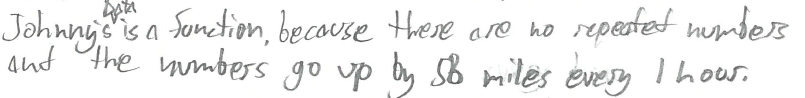 Johnny's Data is a function, because there are no repeated numbers
and the numbers go up by 58 miles every 1 hour.